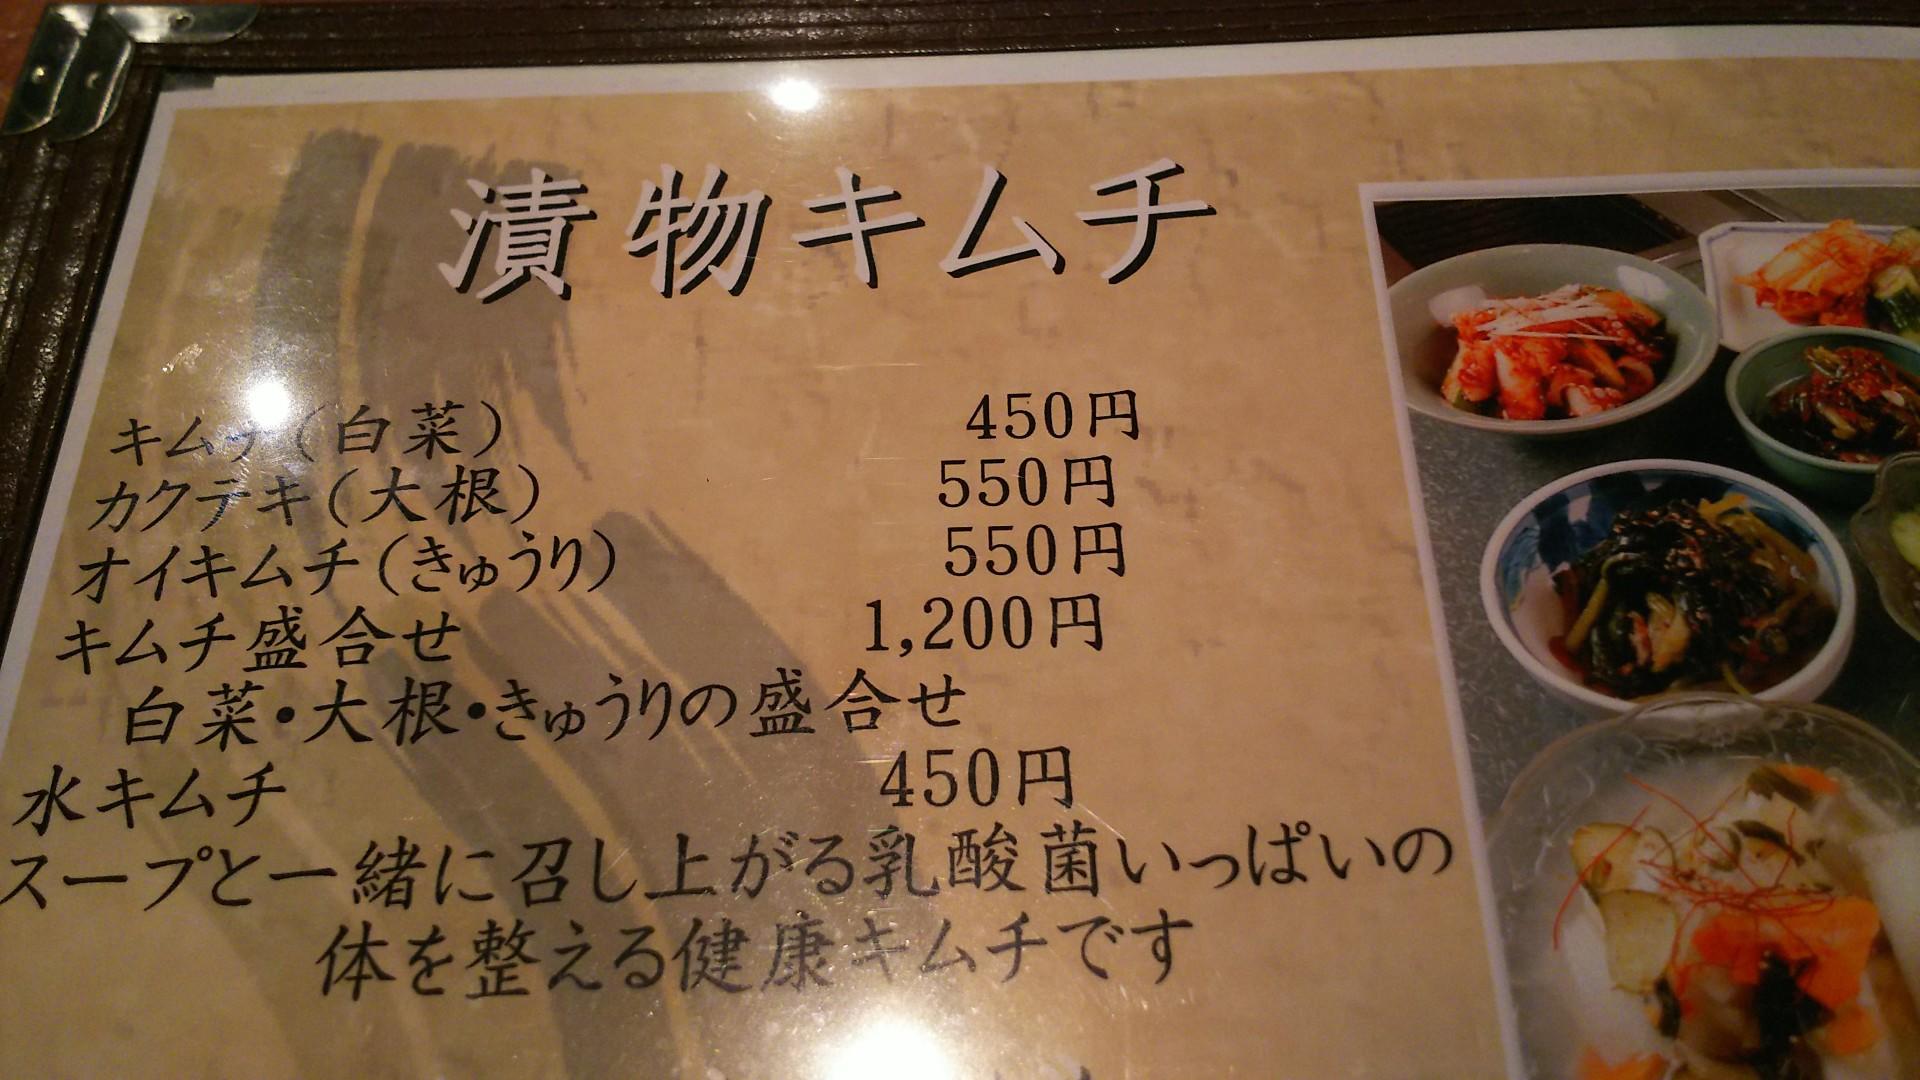 漬物キムチ
キムチ(白菜) 450円
カクテキ(大根) 550円
オイキムチ(きゅうり) 550円
キムチ盛合せ 1,200円
白菜・大根・きゅうりの盛合せ
水キムチ 450円
スープと一緒に召し上がる乳酸菌いっぱいの
体を整える健康キムチです